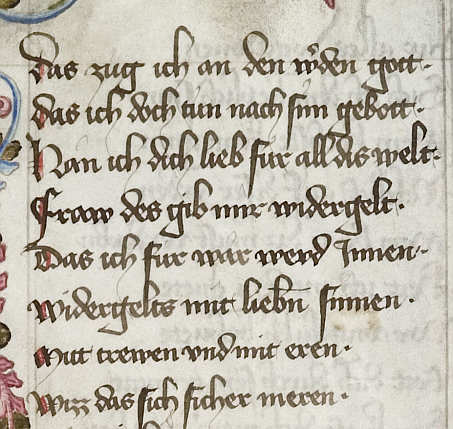 das zug ich an den wͤrden gott.
das ich doch tun nach sim gebott.
Han ich dich lieb fur all dis welt.
Fraw des gib mir widergelt.
Das ich fur war werd Innen.
widergelts mit liebn̄ sinnen.
mit trewen vnd mit eren.
wizz das sich sicher meren.